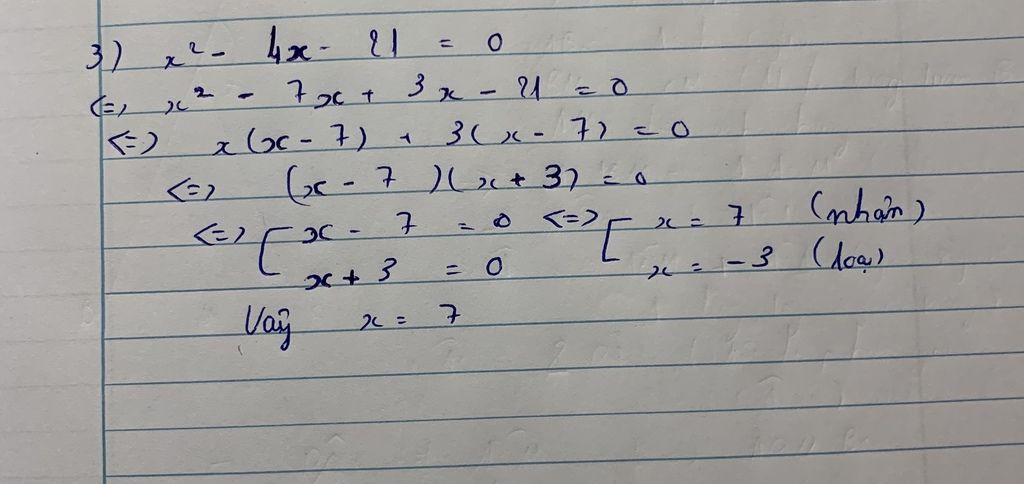 3) x² - 4x - 21 = 0
<=> x² - 7x + 3x - 21 = 0
<=> x(x - 7) + 3(x - 7) = 0
<=> (x - 7)(x + 3) = 0
<=> [ x - 7 = 0 <=> [ x = 7 (nhận)
x + 3 = 0 x = -3 (loạ)
Vaỹ x = 7